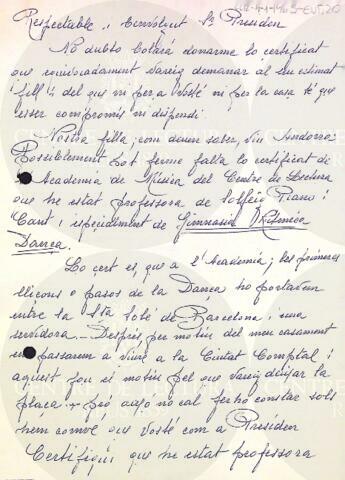 Respectable i Benvolgut Sr Presiden
No dubto voldrá donarme lo certificat
que equivocadament vareig demanar al seu estimat
fill i del que ni per a Vosté ni per la casa té que
esser compromís ni dispendi.
Nostra filla, com deuen saber, viu Andorra.
Possiblement pot ferme falta lo certificat de
Academia de Música del Centre de Lectura
que he estat professora de solfeig Piano i
Cant i especialment de Gimnasia Rítmica
Dança.
Lo cert es, que a l'Academia, les primeres
lliçons o pasos de la Dança ho portavem
entre la Sta de Barcelona i una
servidora... Després per motiu del meu casament
en passarem a viure a la Ciutat Comptal i
aquest fou el motiu pel que vareig deixar la
plaça. però aixo no cal ferho constar sols
hem convé que Vosté com a Presiden
Certifiqui que he estat professora